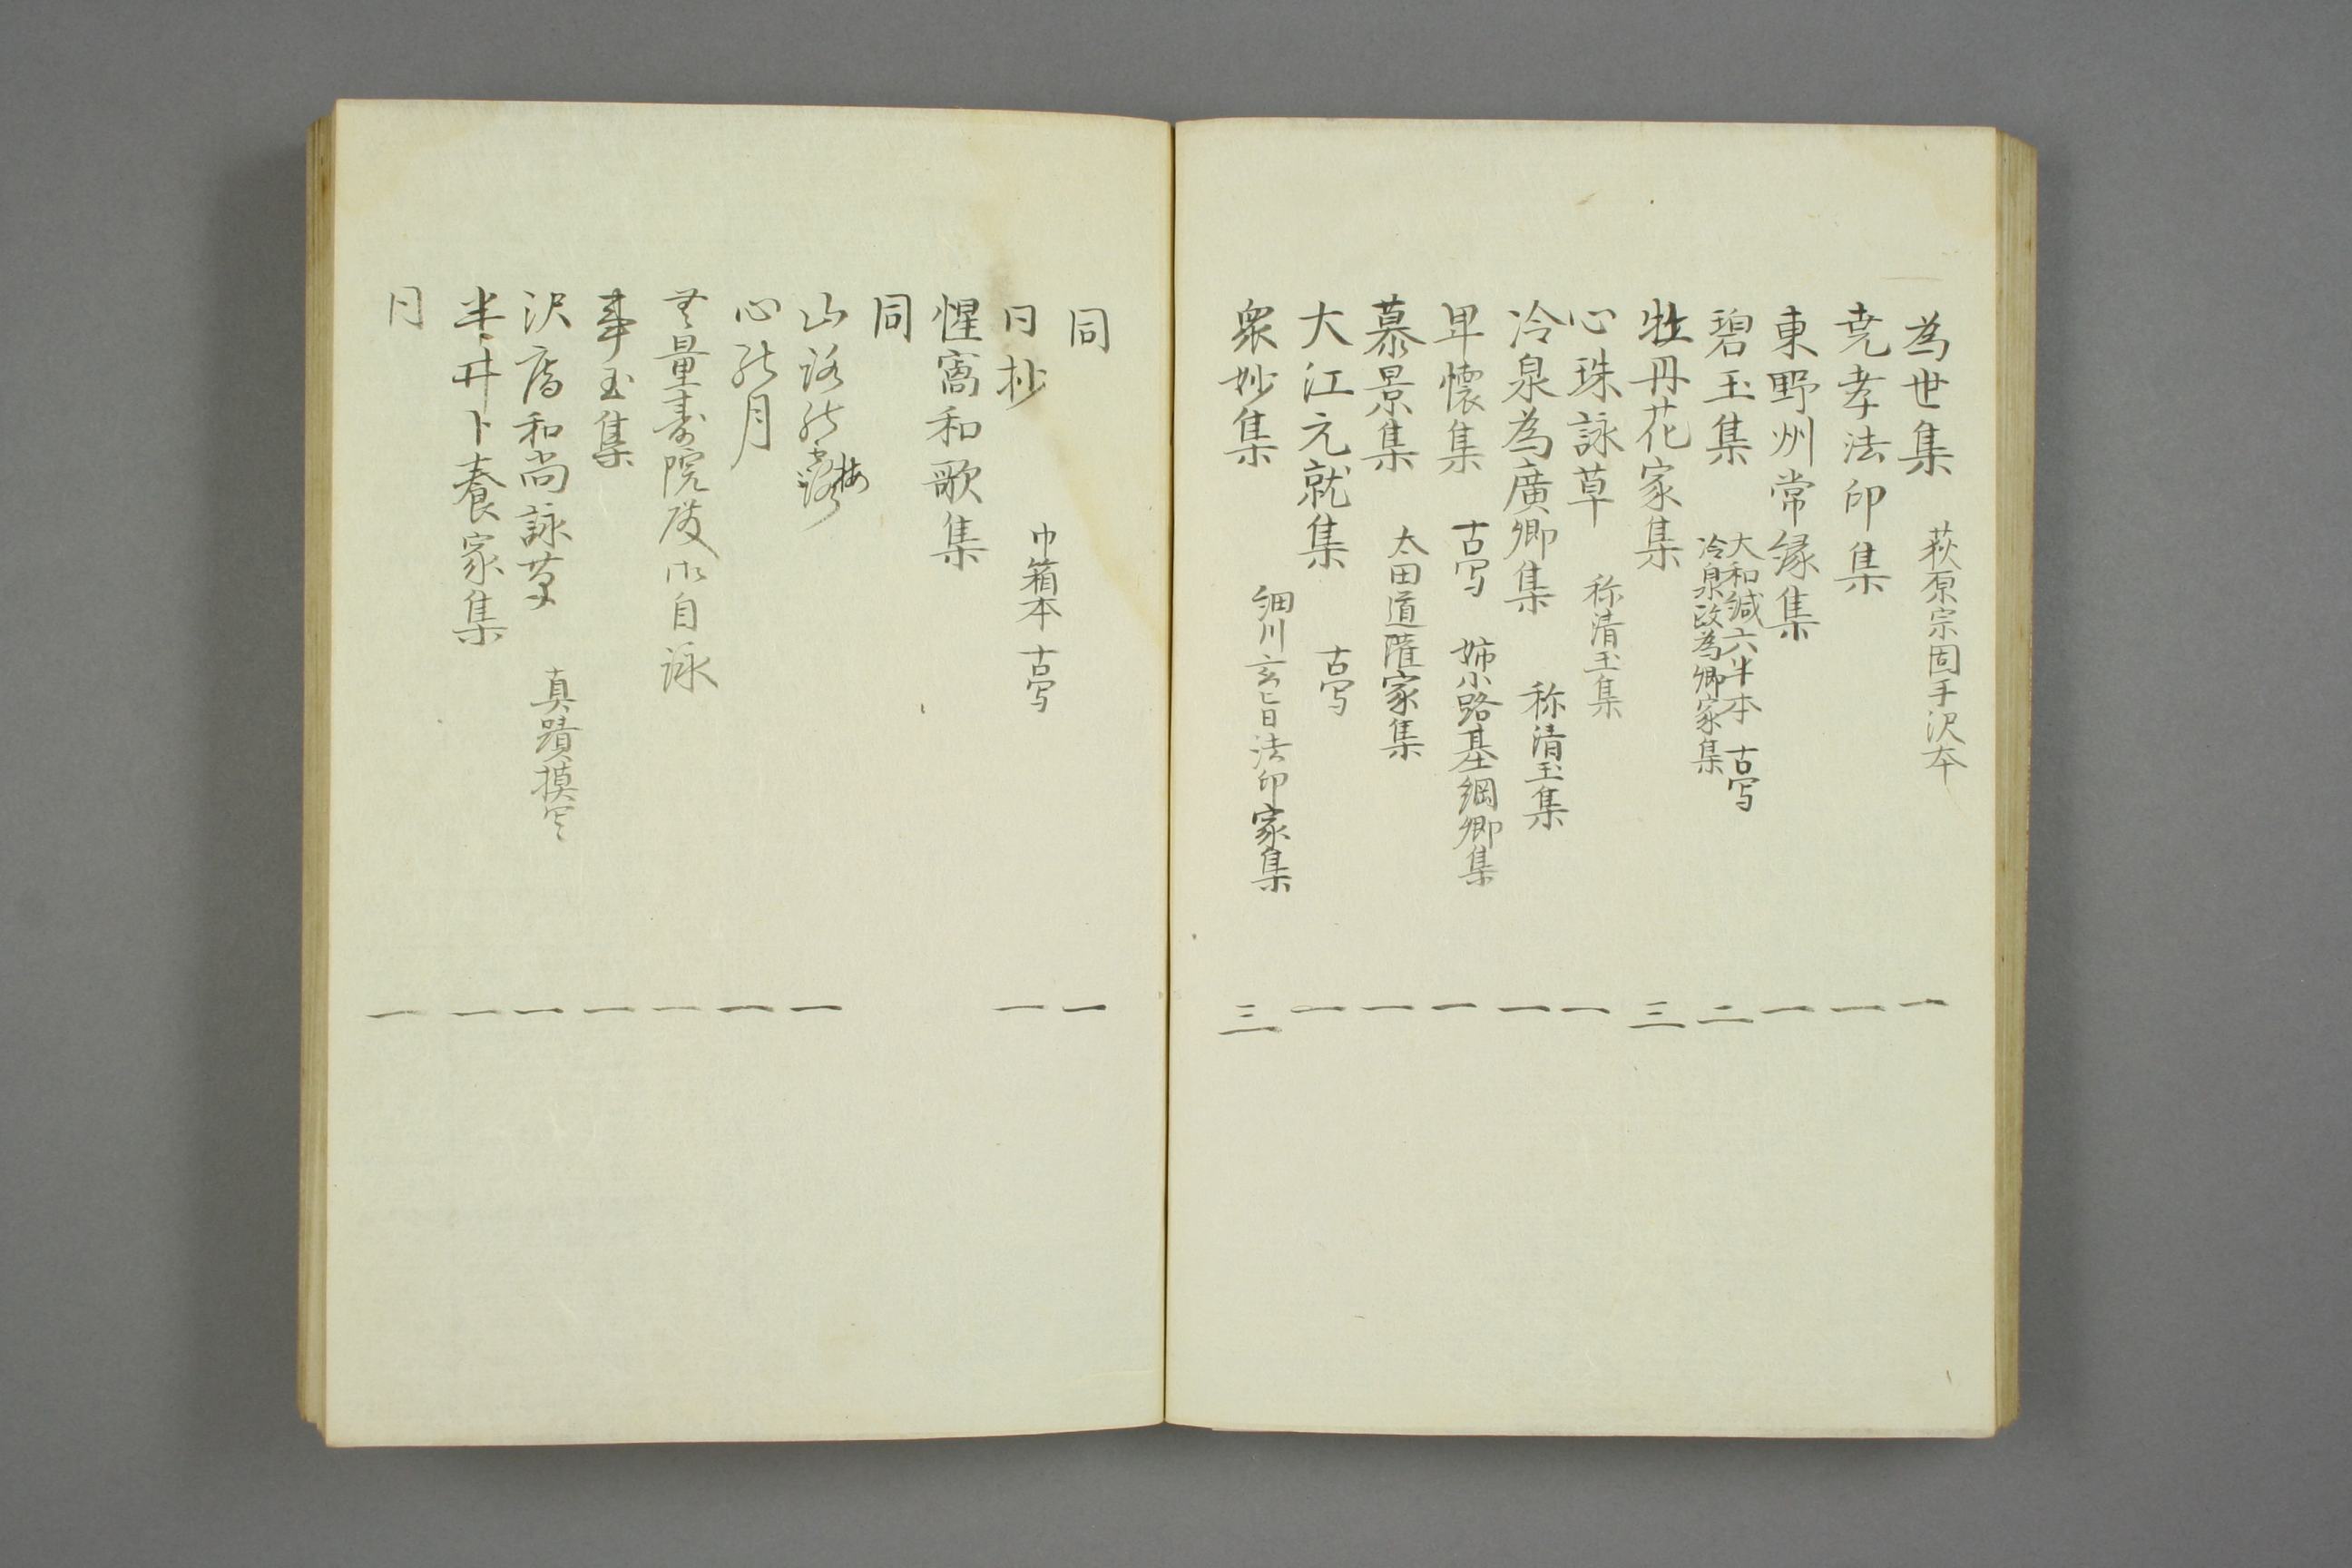 為世集 萩原宗固手沢本 一
尭孝法印集 一
東野州常縁集 一
碧玉集 大和綴六半本 古写 冷泉政為卿家集 二
牡丹花家集 三
心珠詠草 称清玉集 一
冷泉為廣卿集 称清玉集 一
卑懐集 古写 姉小路基綱卿集 一
慕景集 太田道灌家集 一
大江元就集 古写 一
衆妙集 細川玄旨法印家集 三
同 一
同抄 巾箱本 古写 一
惺窩和歌集
同
山路の露 一
心の月 一
無量寿院殿御自詠 一
挙玉集 一
沢庵和尚詠草 真蹟摸写 一
半井卜養家集 一
同 一